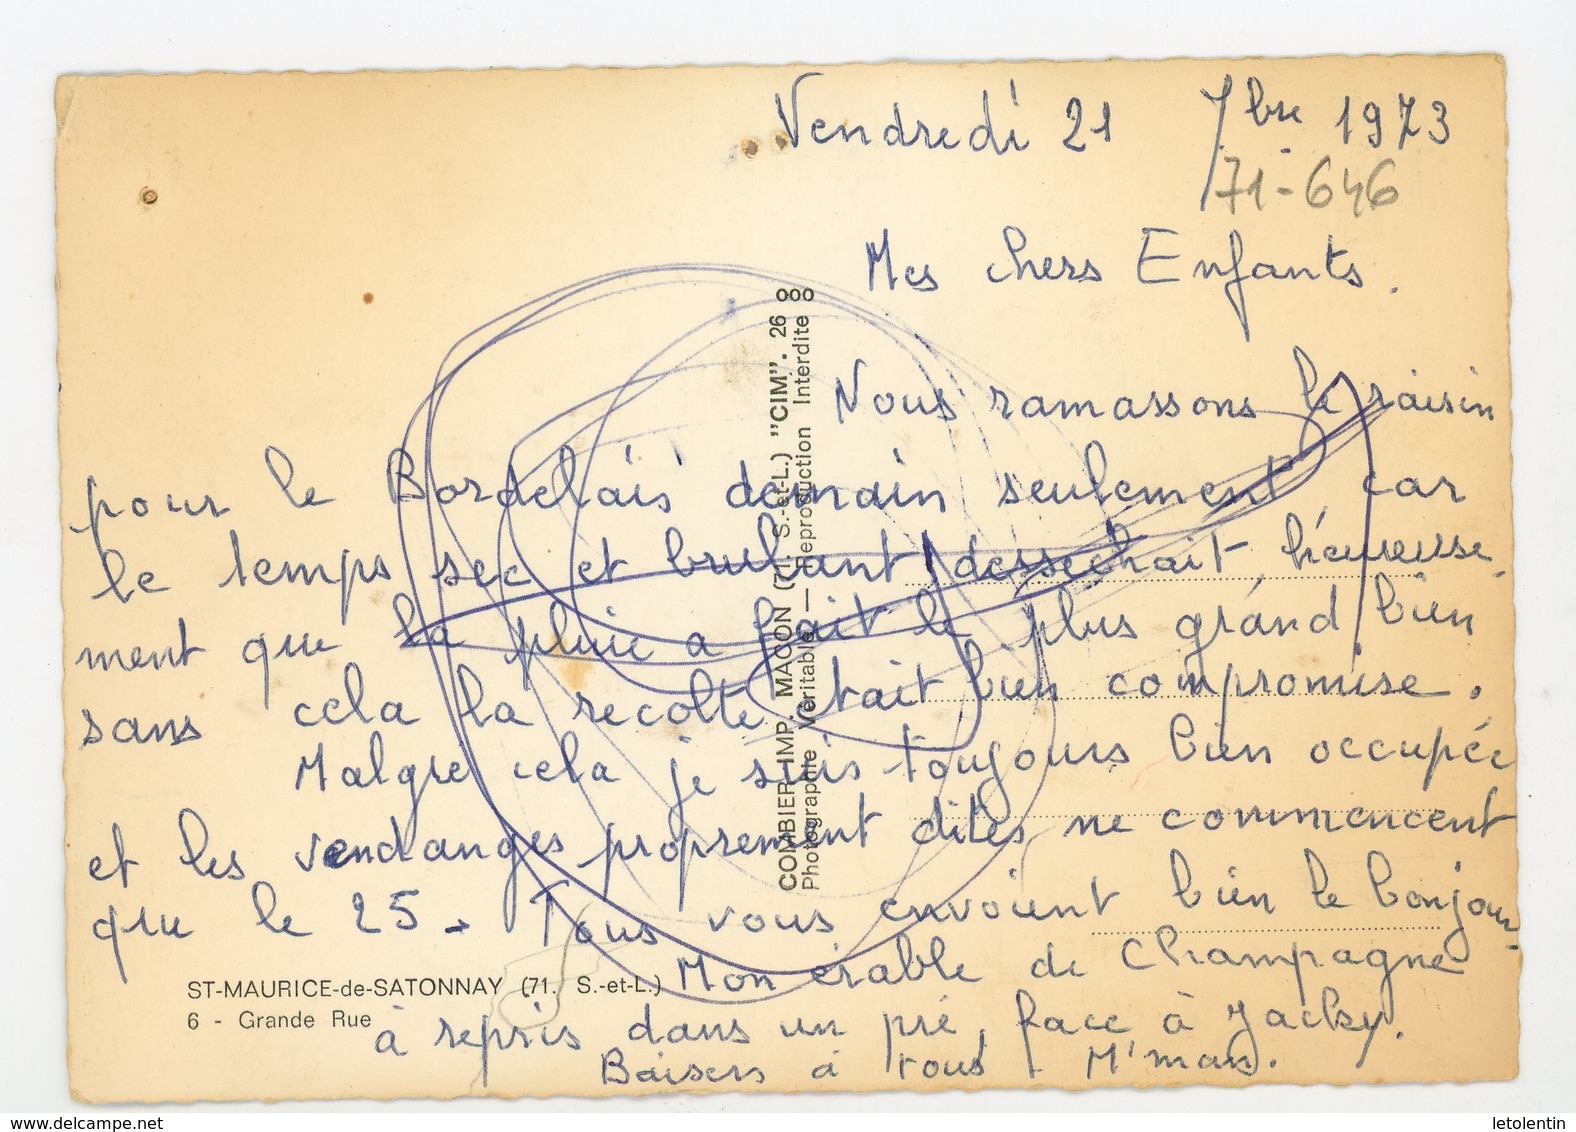 Vendredi 21 7bre 1973
71-646
Mes chers Enfants.
Nous ramassons le raisin
pour le Bordelais demain seulement car
le temps sec et brulant dessechait, heureuse
ment que la pluie a fait le plus grand bien
sans cela la recolte etait bien compromise.
Malgre cela je suis toujours bien occupée
et les vendanges proprement dites ne commencent
que le 25. Tous vous envoient bien le bonjour
Mon erable de Champagne
à repris dans un pré, face à Jacky.
Baisers à tous M'man.
COMBIER IMP. MACON (71. S.-et-L.) "CIM". 26
Photographie Véritable — Reproduction Interdite
ST-MAURICE-de-SATONNAY (71. S.-et-L.)
6 - Grande Rue
www.delcampe.net
letolentin